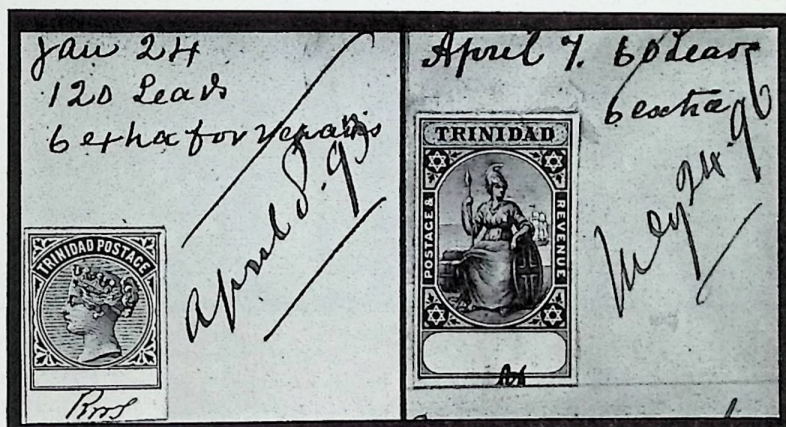 Jan 24
120 Leads
6 extra for repairs
April 8. 93
TRINIDAD POSTAGE
April 7. 60 Leads
6 extra
May 24. 96
TRINIDAD
POSTAGE & REVENUE